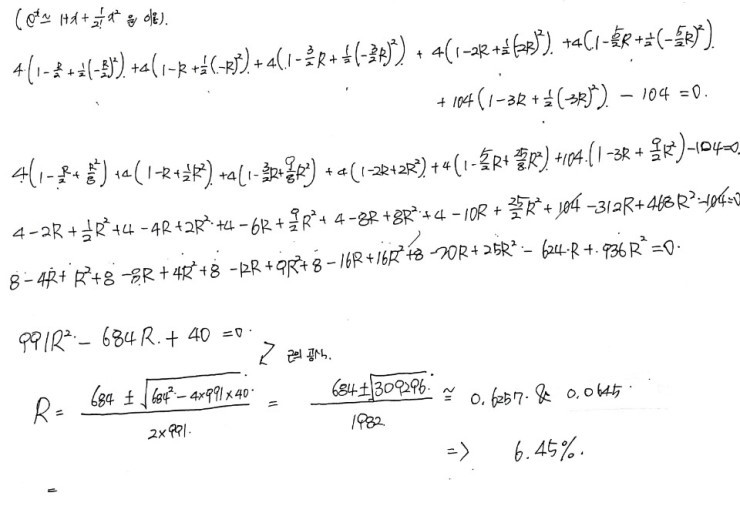 (e^x ≃ 1+x+\frac{1}{2!}x² 을 이용).
4(1-\frac{R}{2}+\frac{1}{2}(-\frac{R}{2})²)+4(1-R+\frac{1}{2}(-R)²)+4(1-\frac{3}{2}R+\frac{1}{2}(-\frac{3}{2}R)²)+4(1-2R+\frac{1}{2}(-2R)²)+4(1-\frac{5}{2}R+\frac{1}{2}(-\frac{5}{2}R)²)
+104(1-3R+\frac{1}{2}(-3R)²)-104=0.
4(1-\frac{R}{2}+\frac{R²}{8})+4(1-R+\frac{1}{2}R²)+4(1-\frac{3}{2}R+\frac{9}{8}R²)+4(1-2R+2R²)+4(1-\frac{5}{2}R+\frac{25}{8}R²)+104.(1-3R+\frac{9}{2}R²)-104=0.
4-2R+\frac{1}{2}R²+4-4R+2R²+4-6R+\frac{9}{2}R²+4-8R+8R²+4-10R+\frac{25}{2}R²+104-312R+468R²-104=0
8-4R+R²+8-8R+4R²+8-12R+9R²+8-16R+16R²+8-20R+25R²-624R+936R²=0.
991R²-684R+40=0.
근의 공식.
R=\frac{684±\sqrt{684²-4×991×40}}{2×991.}=\frac{684±\sqrt{309296.}}{1982}≅0.6257. & 0.0645
=> 6.45%.
=